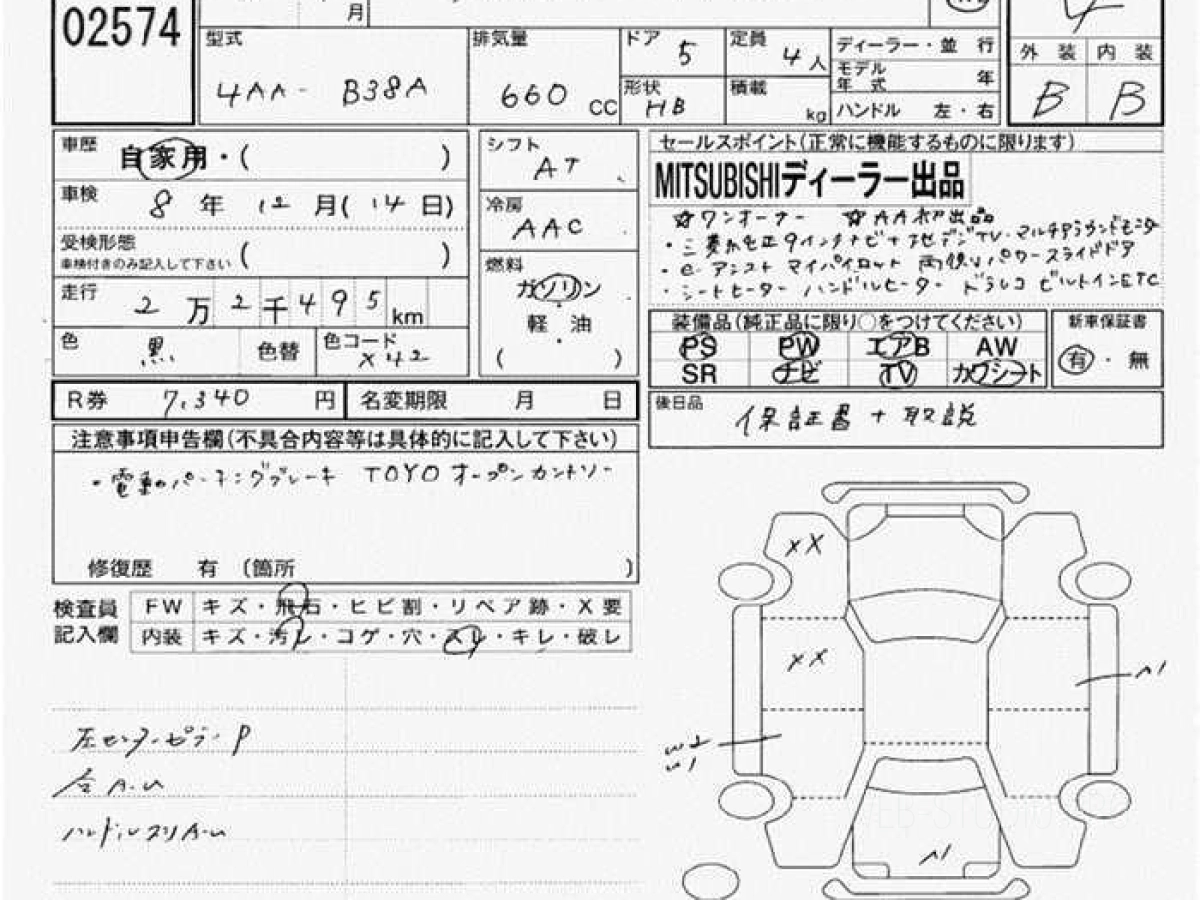 02574
月
型式 4AA- B38A
排気量 660 CC
ドア 5
定員 4人
形状 HB
積載 kg
ディーラー・並行
モデル年式 年
ハンドル 左・右
4
外装 内装
B B
車歴 自家用・( )
車検 8年 12月(14日)
受検形態
車検付きのみ記入して下さい ( )
走行 2万2千495km
色 黒 色替 色コード X42
シフト AT
冷房 AAC
燃料
ガソリン
・
軽油
( )
セールスポイント(正常に機能するものに限ります)
MITSUBISHIディーラー出品
☆ワンオーナー ☆AA初出品
・三菱純正9インチナビ+地デジTV・マルチアラウンドモニター
・e-アシスト マイパイロット 両側パワースライドドア
・シートヒーター ハンドルヒーター ドラレコ ビルトインETC
装備品(純正品に限り○をつけてください)
PS PW エアB AW
SR ナビ TV カワシート
新車保証書
有・無
R券 7,340 円
名変期限 月 日
後日品 保証書+取説
注意事項申告欄(不具合内容等は具体的に記入して下さい)
・電動パーキングブレーキ TOYOオープンカントリー
修復歴 有 〔箇所 )
検査員記入欄
FW キズ・飛石・ヒビ割・リペア跡・X要
内装 キズ・汚レ・コゲ・穴・スレ・キレ・破レ
左センターピラーP
ハンドルスリA-U
XX
XX
W2
W1
A1
A1